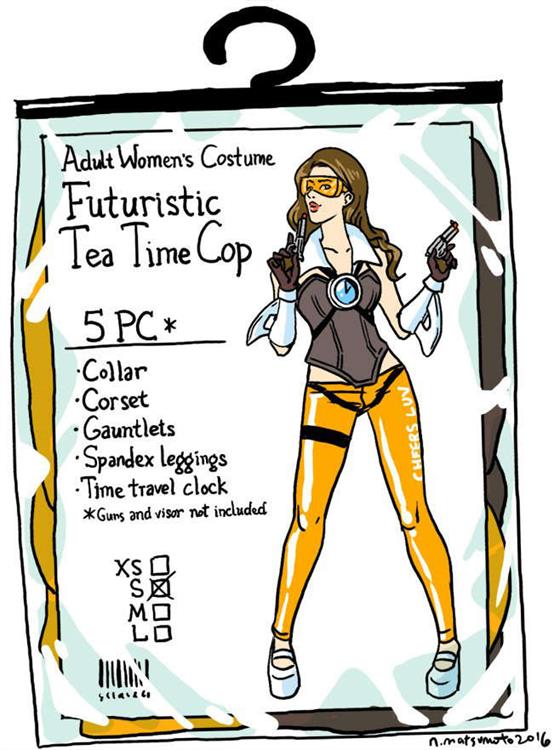 Adult Women's Costume
Futuristic
Tea Time Cop
5 PC *
· Collar
· Corset
· Gauntlets
· Spandex leggings
· Time travel clock
*Guns and visor not included
XS
S
M
L
CHEERS LUV
n.matsumoto2016